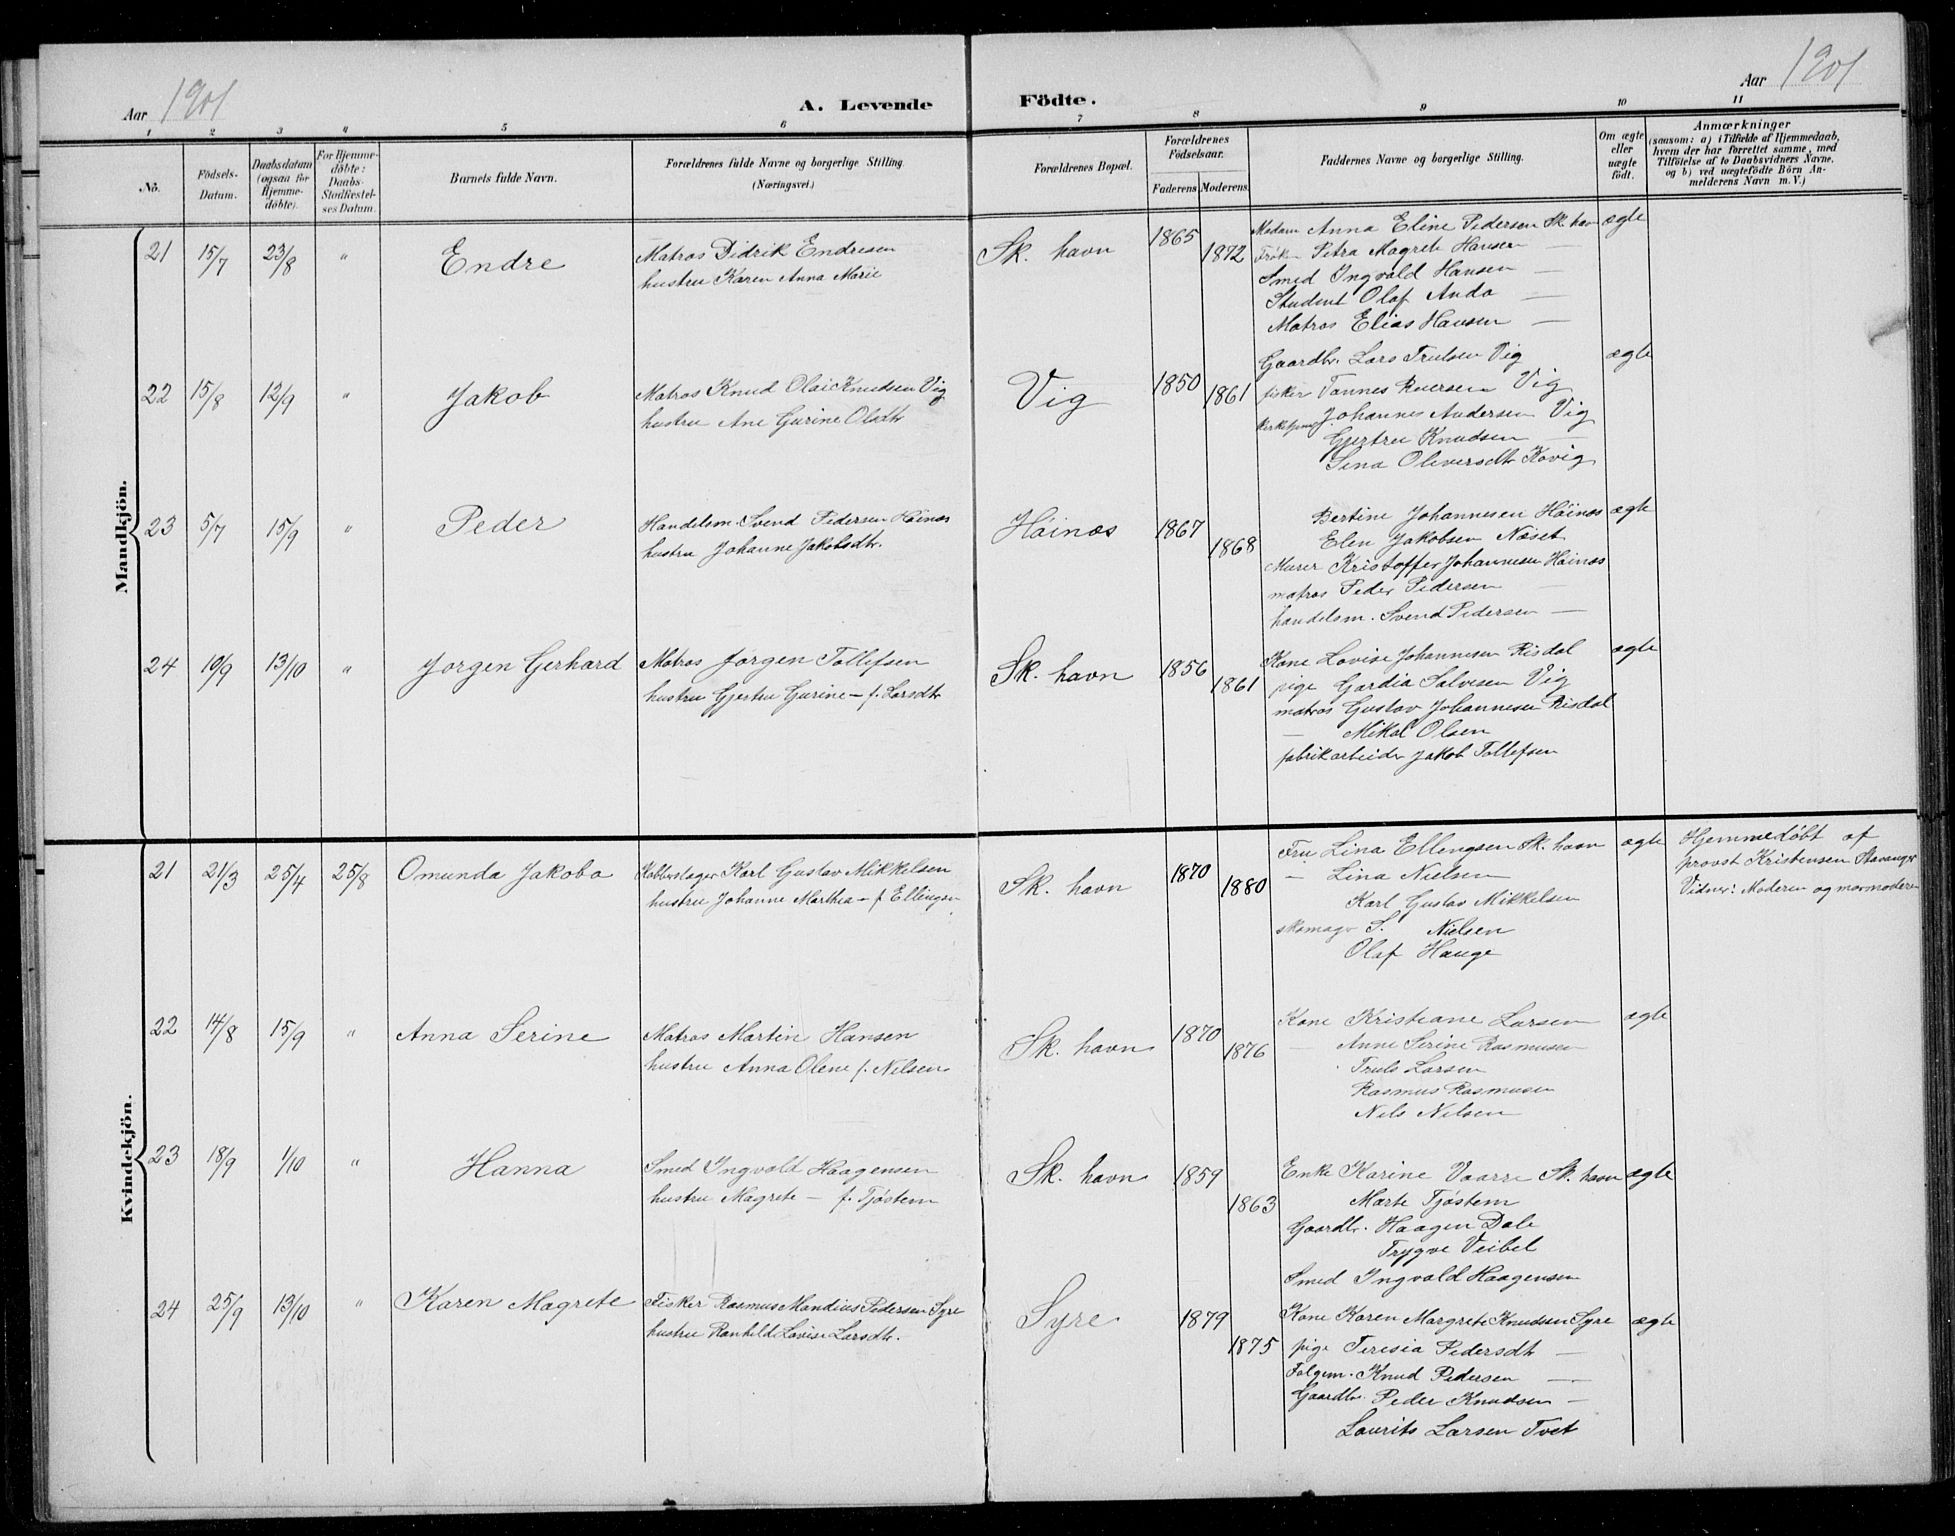 Aar 1901
A. Levende Födte.
Aar 1901
1 2 3 " 5 6 7 8 9 10 11
No.
Födsels-Datum.
Daabsdatum (ogsaa for Hjemme-döbte).
For Hjemme-döbte: Daabs-Stadfæstel-ses Datum.
Barnets fulde Navn.
Forældrenes fulde Navne og borgerlige Stilling.
(Næringsvei.)
Forældrenes Bopæl.
Forældrenes Födselsaar.
Faderens. Moderens.
Faddernes Navne og borgerlige Stilling.
Om ægte eller uægte födt.
Anmærkninger
(saasom: a) i Tilfælde af Hjemmedaab, hvem der har forrettet samme, med Tilföielse af to Daabsvidners Navne, og b) ved uægtefödte Börn An-melderens Navn m. V.)
Mandkjön.
21 15/7 23/8 " Endre
Matros Didrik Endresen
hustru Karen Anna Marie
Sk. havn 1865 1872
Madam Anna Eline Pedersen Sk. havn
Frøk. Petra Magrete Hansen —
Smed Ingvald Hansen —
Student Olaf Anda —
Matros Elias Hansen —
ægte
22 15/8 12/9 " Jakob
Matros Knud Olai Knudsen Vig
hustru Ane Gurine Olsdtr
Vig 1850 1861
Gaardbr. Lars Trulsen Vig
fisker Tannes Iversen Vig
Kirketjener Johannes Andersen Vig
Gjertru Knudsen —
Sina Oliversdtr Kovig
ægte
23 5/7 15/9 " Peder
Handelsm. Svend Pedersen Høines
hustru Johanne Jakobsdtr.
Høines 1867 1868
Bertine Johannesen Høines
Elen Jakobsen Næset
Murer Kristoffer Johannesen Høines
matros Peder Pedersen —
handelsm. Svend Pedersen —
ægte
24 19/9 13/10 " Jørgen Gerhard
Matros Jørgen Tollefsen
hustru Gjertru Gurine — f. Larsdtr
Sk. havn 1856 1861
Kone Lovise Johannesen Risdal
pige Gardia Salvesen Vig
matros Gustav Johannesen Risdal
— Mikal Olsen
fabrikarbeider Jakob Tollefsen
ægte
Kvindekjön.
21 21/3 25/4 25/8 Omunda Jakoba
Kobberslager Karl Gustav Mikkelsen
hustru Johanne Marthea — f. Ellingsen
Sk. havn 1870 1880
Fru Lina Ellengsen Sk. havn
— Lina Nielsen
Karl Gustav Mikkelsen
skomagr S. Nielsen
Olaf Hauge
ægte
Hjemmedøbt af
provst Kristensen Stavanger
Vidner: Moderen og mormoderen
22 14/8 15/9 " Anna Serine
Matros Martin Hansen
hustru Anna Olene f. Nilsen
Sk. havn 1870 1876
Kone Kristiane Larsen
— Anne Serine Rasmusen
Truls Larsen
Rasmus Rasmusen
Nils Nilsen
ægte
23 18/9 1/10 " Hanna
Smed Ingvald Haagensen
hustru Magrete — f. Tjøstem
Sk. havn 1859 1863
Enke Karine Vaarre Sk. havn
Marte Tjøstem
Gaardbr. Haagen Dale
Trygve Veibel
Smed Ingvald Haagensen
ægte
24 25/9 13/10 " Karen Magrete
Fisker Rasmus Mandius Pedersen Syre
hustru Ranhild Lovise Larsdtr.
Syre 1879 1875
Kone Karen Margrete Knudsen Syre
pige Teresia Pedersdtr —
Følgem. Knud Pedersen —
Gaardbr. Peder Knudsen —
Lourits Larsen Tvet
ægte